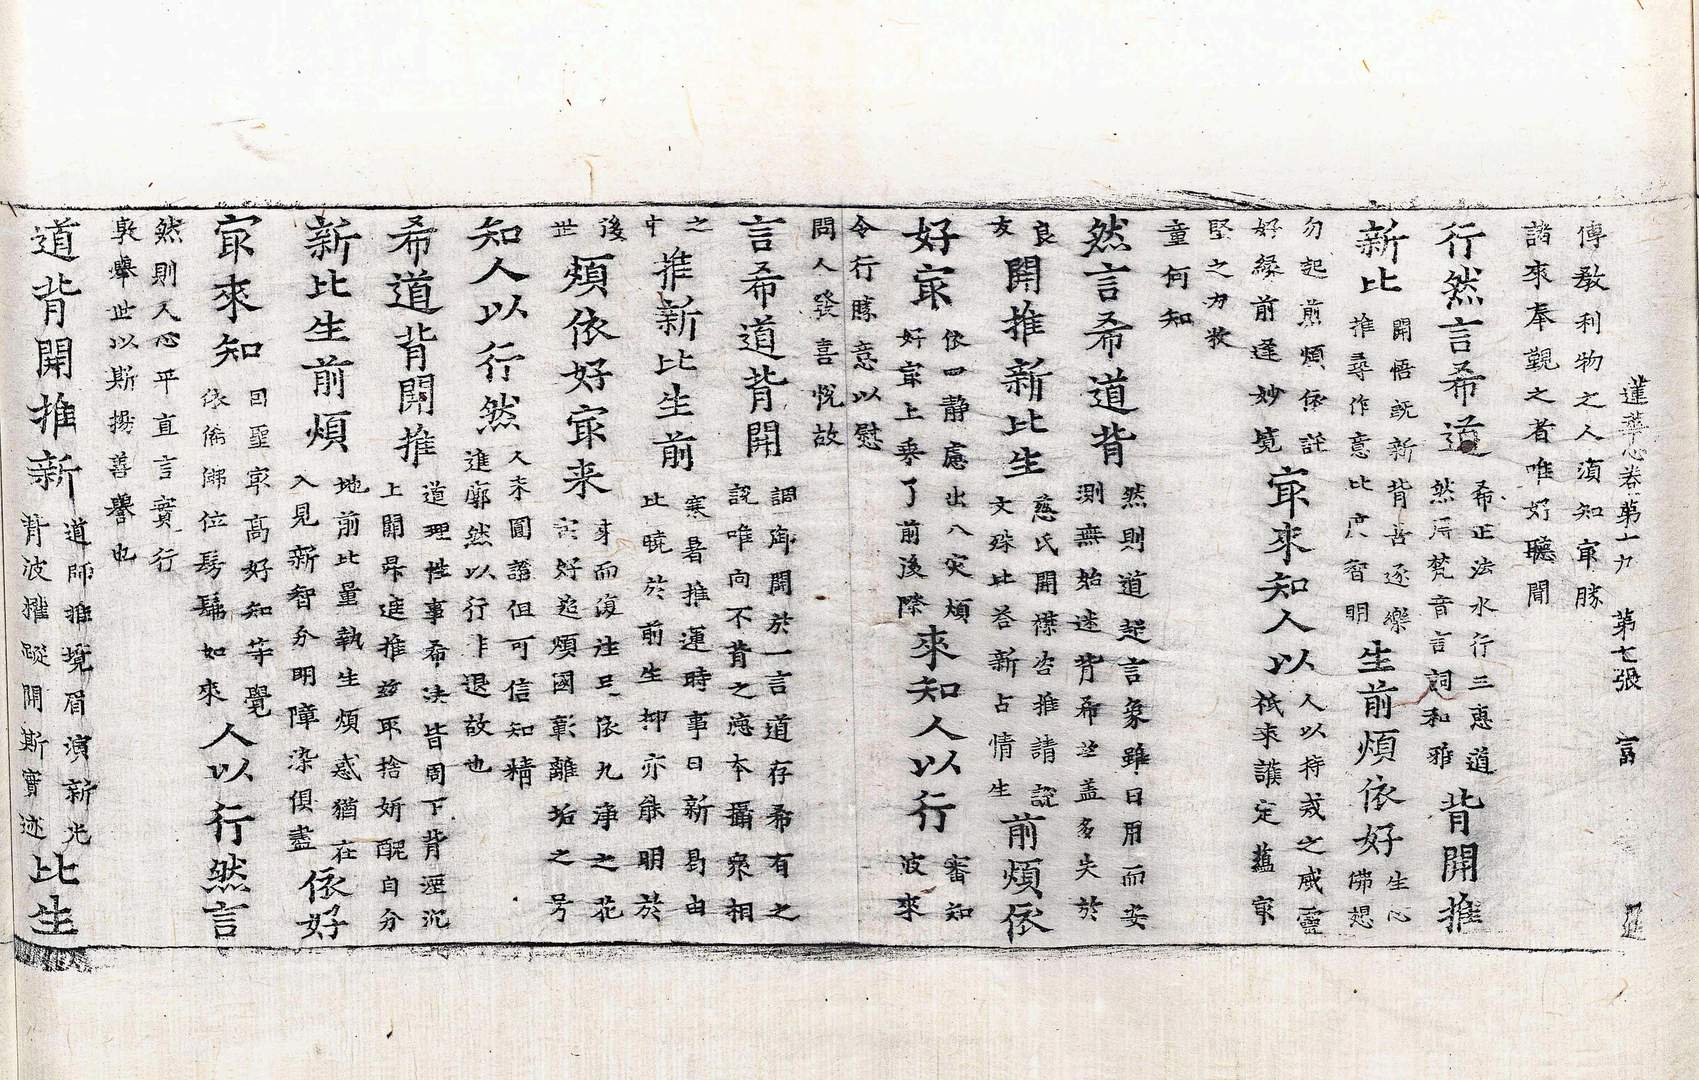 蓮華心卷第十九　第七張　富
傳教利物之人須知㝡勝
諸來奉覲之者唯好聽聞
行然言希道
希正法水行三惠道
然潟梵音言詞和雅
背開推
新比
開悟既新背苦逐樂
推尋作意比度智明
生前煩依好
生心
佛想
勿起煎煩依託
好緣前逢妙境
㝡來知人以
人以持戒之威靈
祇來護定蘊㝡
堅之力牧
童何知
然言希道背
然則道超言象雖日用而安
測無始迷背希世盖多失於
良
友
開推新比生
慈氏開襟咨推請說
文殊比答新占情生
前煩依
好㝡
依四靜慮出八灾煩
好㝡上乘了前後際
來知人以行
審知
波來
令行勝意以慰
問人發喜悅故
言希道背開
調御開於一言道存希有之
說唯向不背之徳本攝衆相
之
中
推新比生前
寒暑推運時事日新易由
比曉於前生抑亦能明於
後
世
煩依好㝡来
身而復注足依九淨之花
㝡好莚煩國彰離垢之号
知人以行然
人未圓證但可信知精
進廓然以行牛退故也
希道背開推
道理性事希决皆周下背湮沉
上開昇進推茲耶捨妍醜自分
新比生前煩
地前比量執生煩惑猶在
入見新智分明障染俱盡
依好
㝡來知
曰聖㝡高好知等覺
依俙佛位髣髴如來
人以行然言
然則人心平直言實行
敦舉世以斯揚善譽也
道背開推新
道師推境眉演新光
背波權蹤開斯實迹
比生